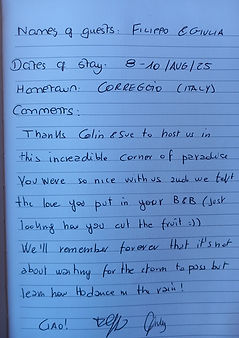 Names of guests: FILIPPO & GIULIA
Dates of stay: 8-10/AUG/25
Hometown: CORREGGIO (ITALY)
Comments:
Thanks Colin & Sue to host us in
this increadible corner of paradise
You were so nice with us and we felt
the love you put in your B&B (just
looking how you cut the fruit :))
We'll remember forever that it's not
about waiting for the storm to pass but
learn how to dance in the rain!
CIAO!